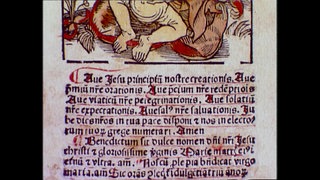 Aue Jesu principiũ nostre creationis. Aue
nr̃e orationis. Aue p̃cium nr̃e redẽptiõis
Aue viaticũ nr̃e peregrinationis. Aue solatiũ
nr̃e expectationis. Aue sal⁹ nr̃e saluationis. Tu iu
be dies nr̃os in tua pace disponi ⁊ nos in electo
rum iuo℞ grege numerari. Amen
Benedictum sit dulce nomen dñi nr̃i Je
su christi ⁊ gloriosissime ṽginis Marie matris
⁊ vltra. am̃. Nos cũ ple pia bñdicat virgo
maria. am̃.